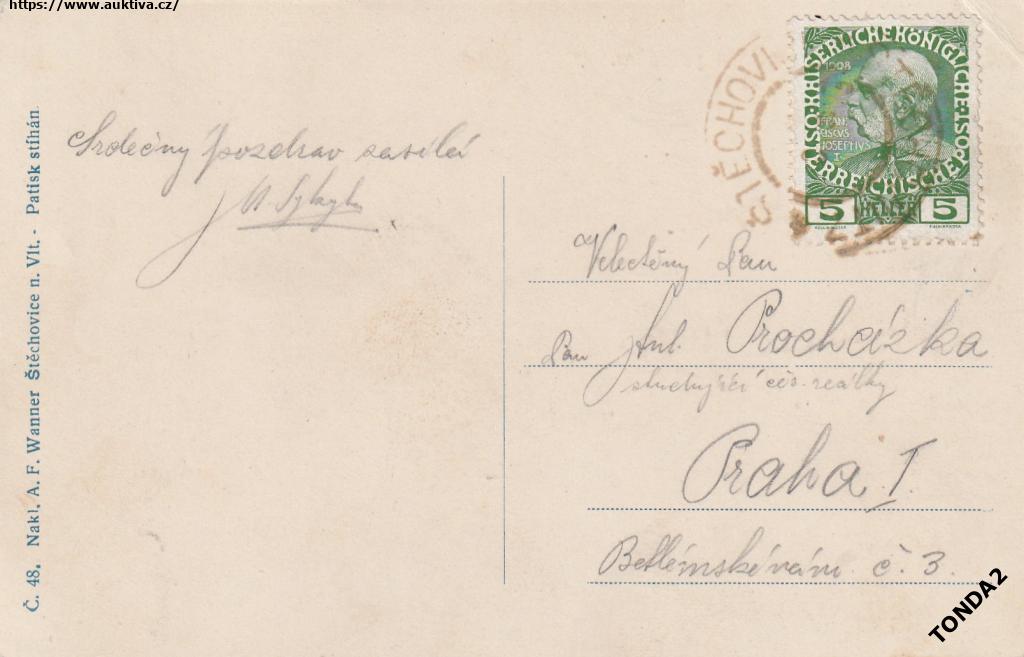 https://www.auktiva.cz/
Č. 48. Nakl. A. F. Wanner Štěchovice n. Vlt. - Patisk stíhán
Srdečný pozdrav zasílá
ŠTĚCHOVI
KAISERLICHE KÖNIGLICHE
ÖSTERREICHISCHE POST
1908
FRAN
CISCUS
JOSEPHUS
I
5 HELLER 5
Velectěný Pan
Pan Ant. Procházka
studující čes. reálky
Praha I.
Betlémské nám č. 3.
TONDA2